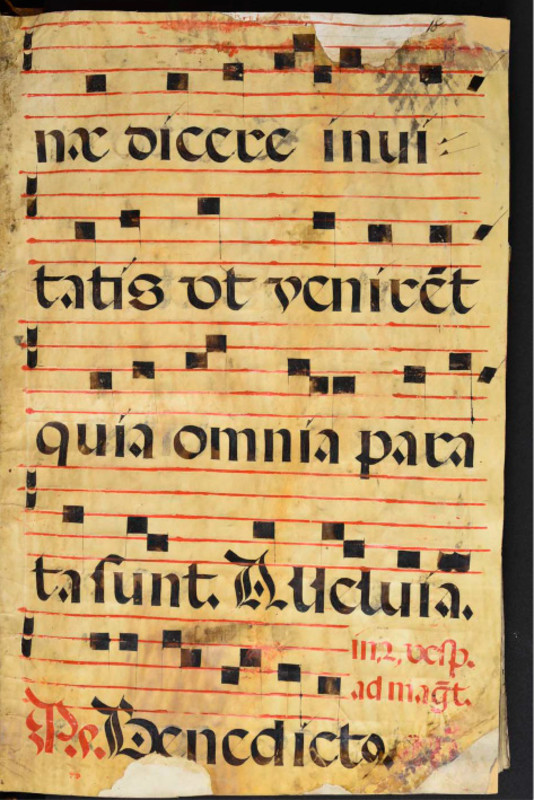 næ dicere inui=
tatis vt venirẽt
quia omnia para
ta sunt. Alleluia.
in .2. vesp.
ad mag̃t.
Ps. Benedicto.